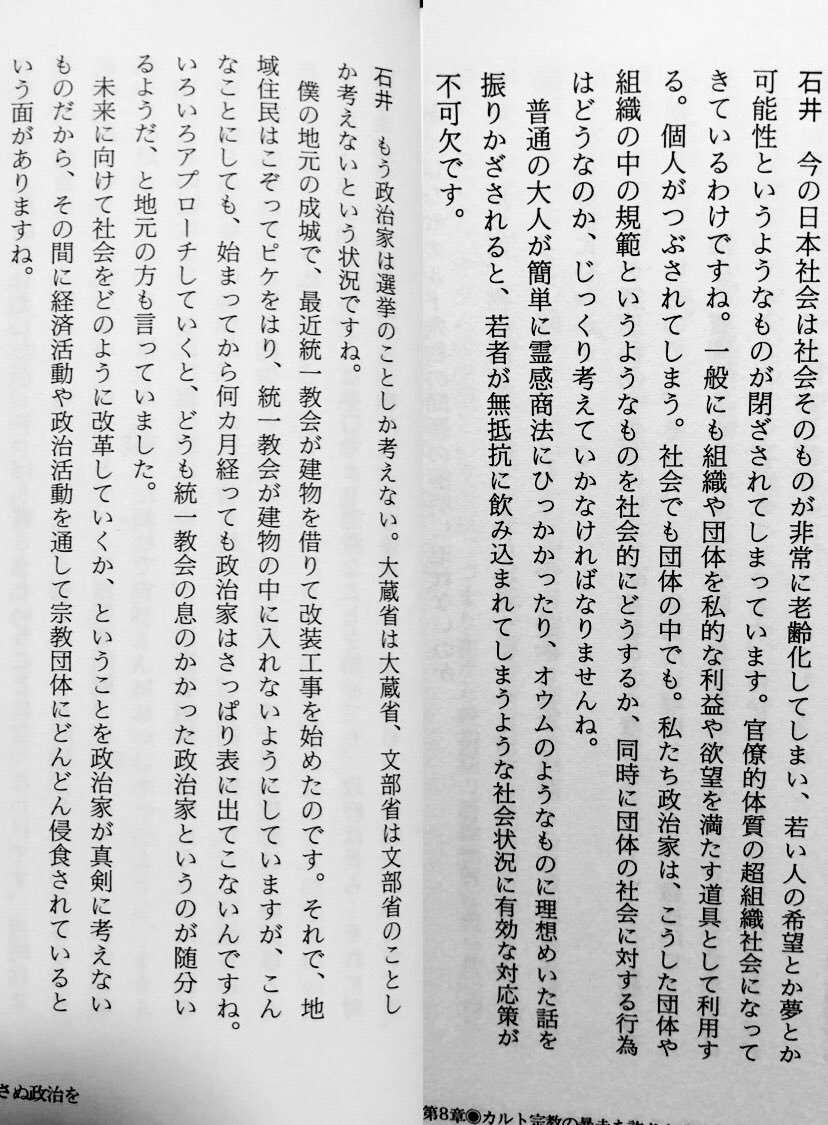 石井　今の日本社会は社会そのものが非常に老齢化してしまい、若い人の希望とか夢とか
可能性というようなものが閉ざされてしまっています。官僚的体質の超組織社会になって
きているわけですね。一般にも組織や団体を私的な利益や欲望を満たす道具として利用す
る。個人がつぶされてしまう。社会でも団体の中でも。私たち政治家は、こうした団体や
組織の中の規範というようなものを社会的にどうするか、同時に団体の社会に対する行為
はどうなのか、じっくり考えていかなければなりませんね。
普通の大人が簡単に霊感商法にひっかかったり、オウムのようなものに理想めいた話を
振りかざされると、若者が無抵抗に飲み込まれてしまうような社会状況に有効な対応策が
不可欠です。
第8章◉カルト宗教の暴走を許
石井　もう政治家は選挙のことしか考えない。大蔵省は大蔵省、文部省は文部省のことし
か考えないという状況ですね。
僕の地元の成城で、最近統一教会が建物を借りて改装工事を始めたのです。それで、地
域住民はこぞってピケをはり、統一教会が建物の中に入れないようにしていますが、こん
なことにしても、始まってから何カ月経っても政治家はさっぱり表に出てこないんですね。
いろいろアプローチしていくと、どうも統一教会の息のかかった政治家というのが随分い
るようだ、と地元の方も言っていました。
未来に向けて社会をどのように改革していくか、ということを政治家が真剣に考えない
ものだから、その間に経済活動や政治活動を通して宗教団体にどんどん侵食されていると
いう面がありますね。
さぬ政治を